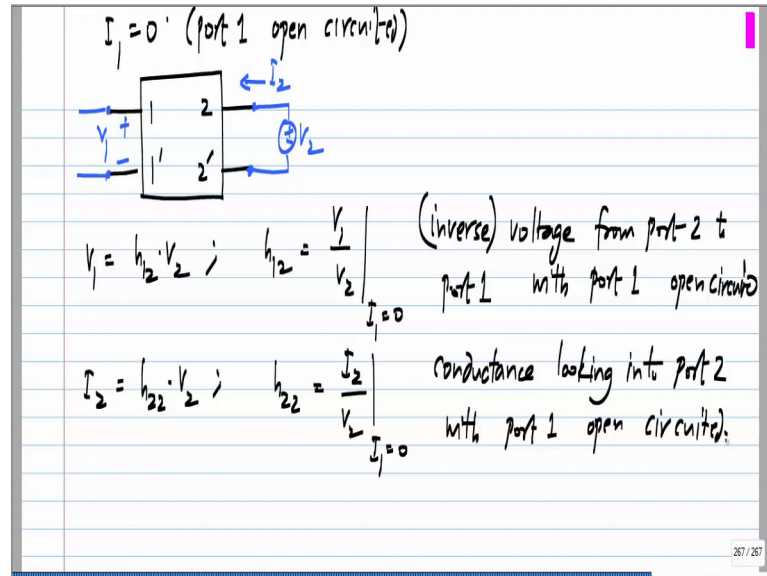 I₁ = 0 (port 1 open circuited)
← I₂
1 2
V₁ + − ± V₂
1' 2'
V₁ = h₁₂·V₂ ; h₁₂ = V₁/V₂ |I₁=0 (inverse) voltage from port 2 t
port 1 with port 1 open circuite
I₂ = h₂₂·V₂ ; h₂₂ = I₂/V₂ |I₁=0 conductance looking into port 2
with port 1 open circuited.
267 / 267